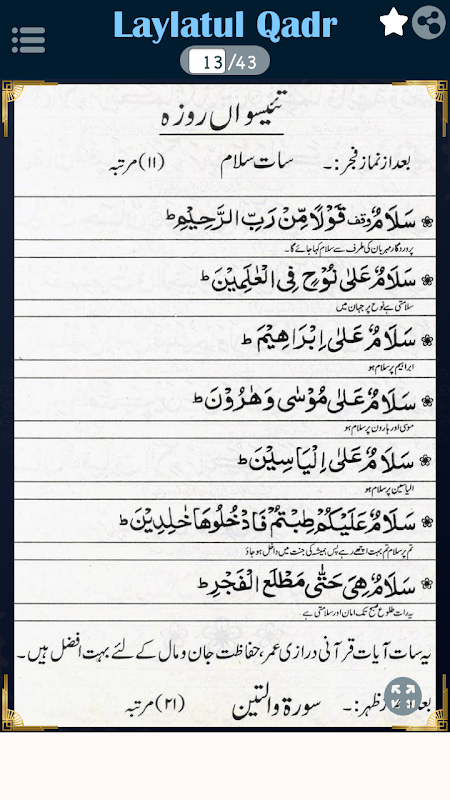 Laylatul Qadr
13/43
تئیسواں روزہ
بعد از نماز فجر:۔ سات سلام (۱۱) مرتبہ
سَلَامٌ وقف قَوْلًا مِّنْ رَّبِّ الرَّحِيْمِ ط
پروردگار مہربان کی طرف سے سلام کہا جائے گا۔
سَلَامٌ عَلٰى نُوْحٍ فِى الْعٰلَمِيْنَ ط
سلامتی ہے نوح پر جہان میں
سَلَامٌ عَلٰى اِبْرَاهِيْمَ ط
ابراہیم پر سلام ہو
سَلَامٌ عَلٰى مُوْسٰى وَهٰرُوْنَ ط
موسی اور ہارون پر سلام ہو
سَلَامٌ عَلٰى اِلْيَاسِيْنَ ط
الیاسین پر سلام ہو
سَلَامٌ عَلَيْكُمْ طِبْتُمْ فَادْخُلُوْهَا خٰلِدِيْنَ ط
تم پر سلام تم بہت اچھے رہے پس ہمیشہ کی جنت میں داخل ہو جاؤ
سَلَامٌ هِىَ حَتّٰى مَطْلَعِ الْفَجْرِ ط
یہ رات طلوع صبح تک امان اور سلامتی ہے
یہ سات آیات قرآنی درازی عمر، حفاظت جان و مال کے لئے بہت افضل ہیں۔
بعد از نماز ظہر:۔ سورۃ والتین (۲۱) مرتبہ